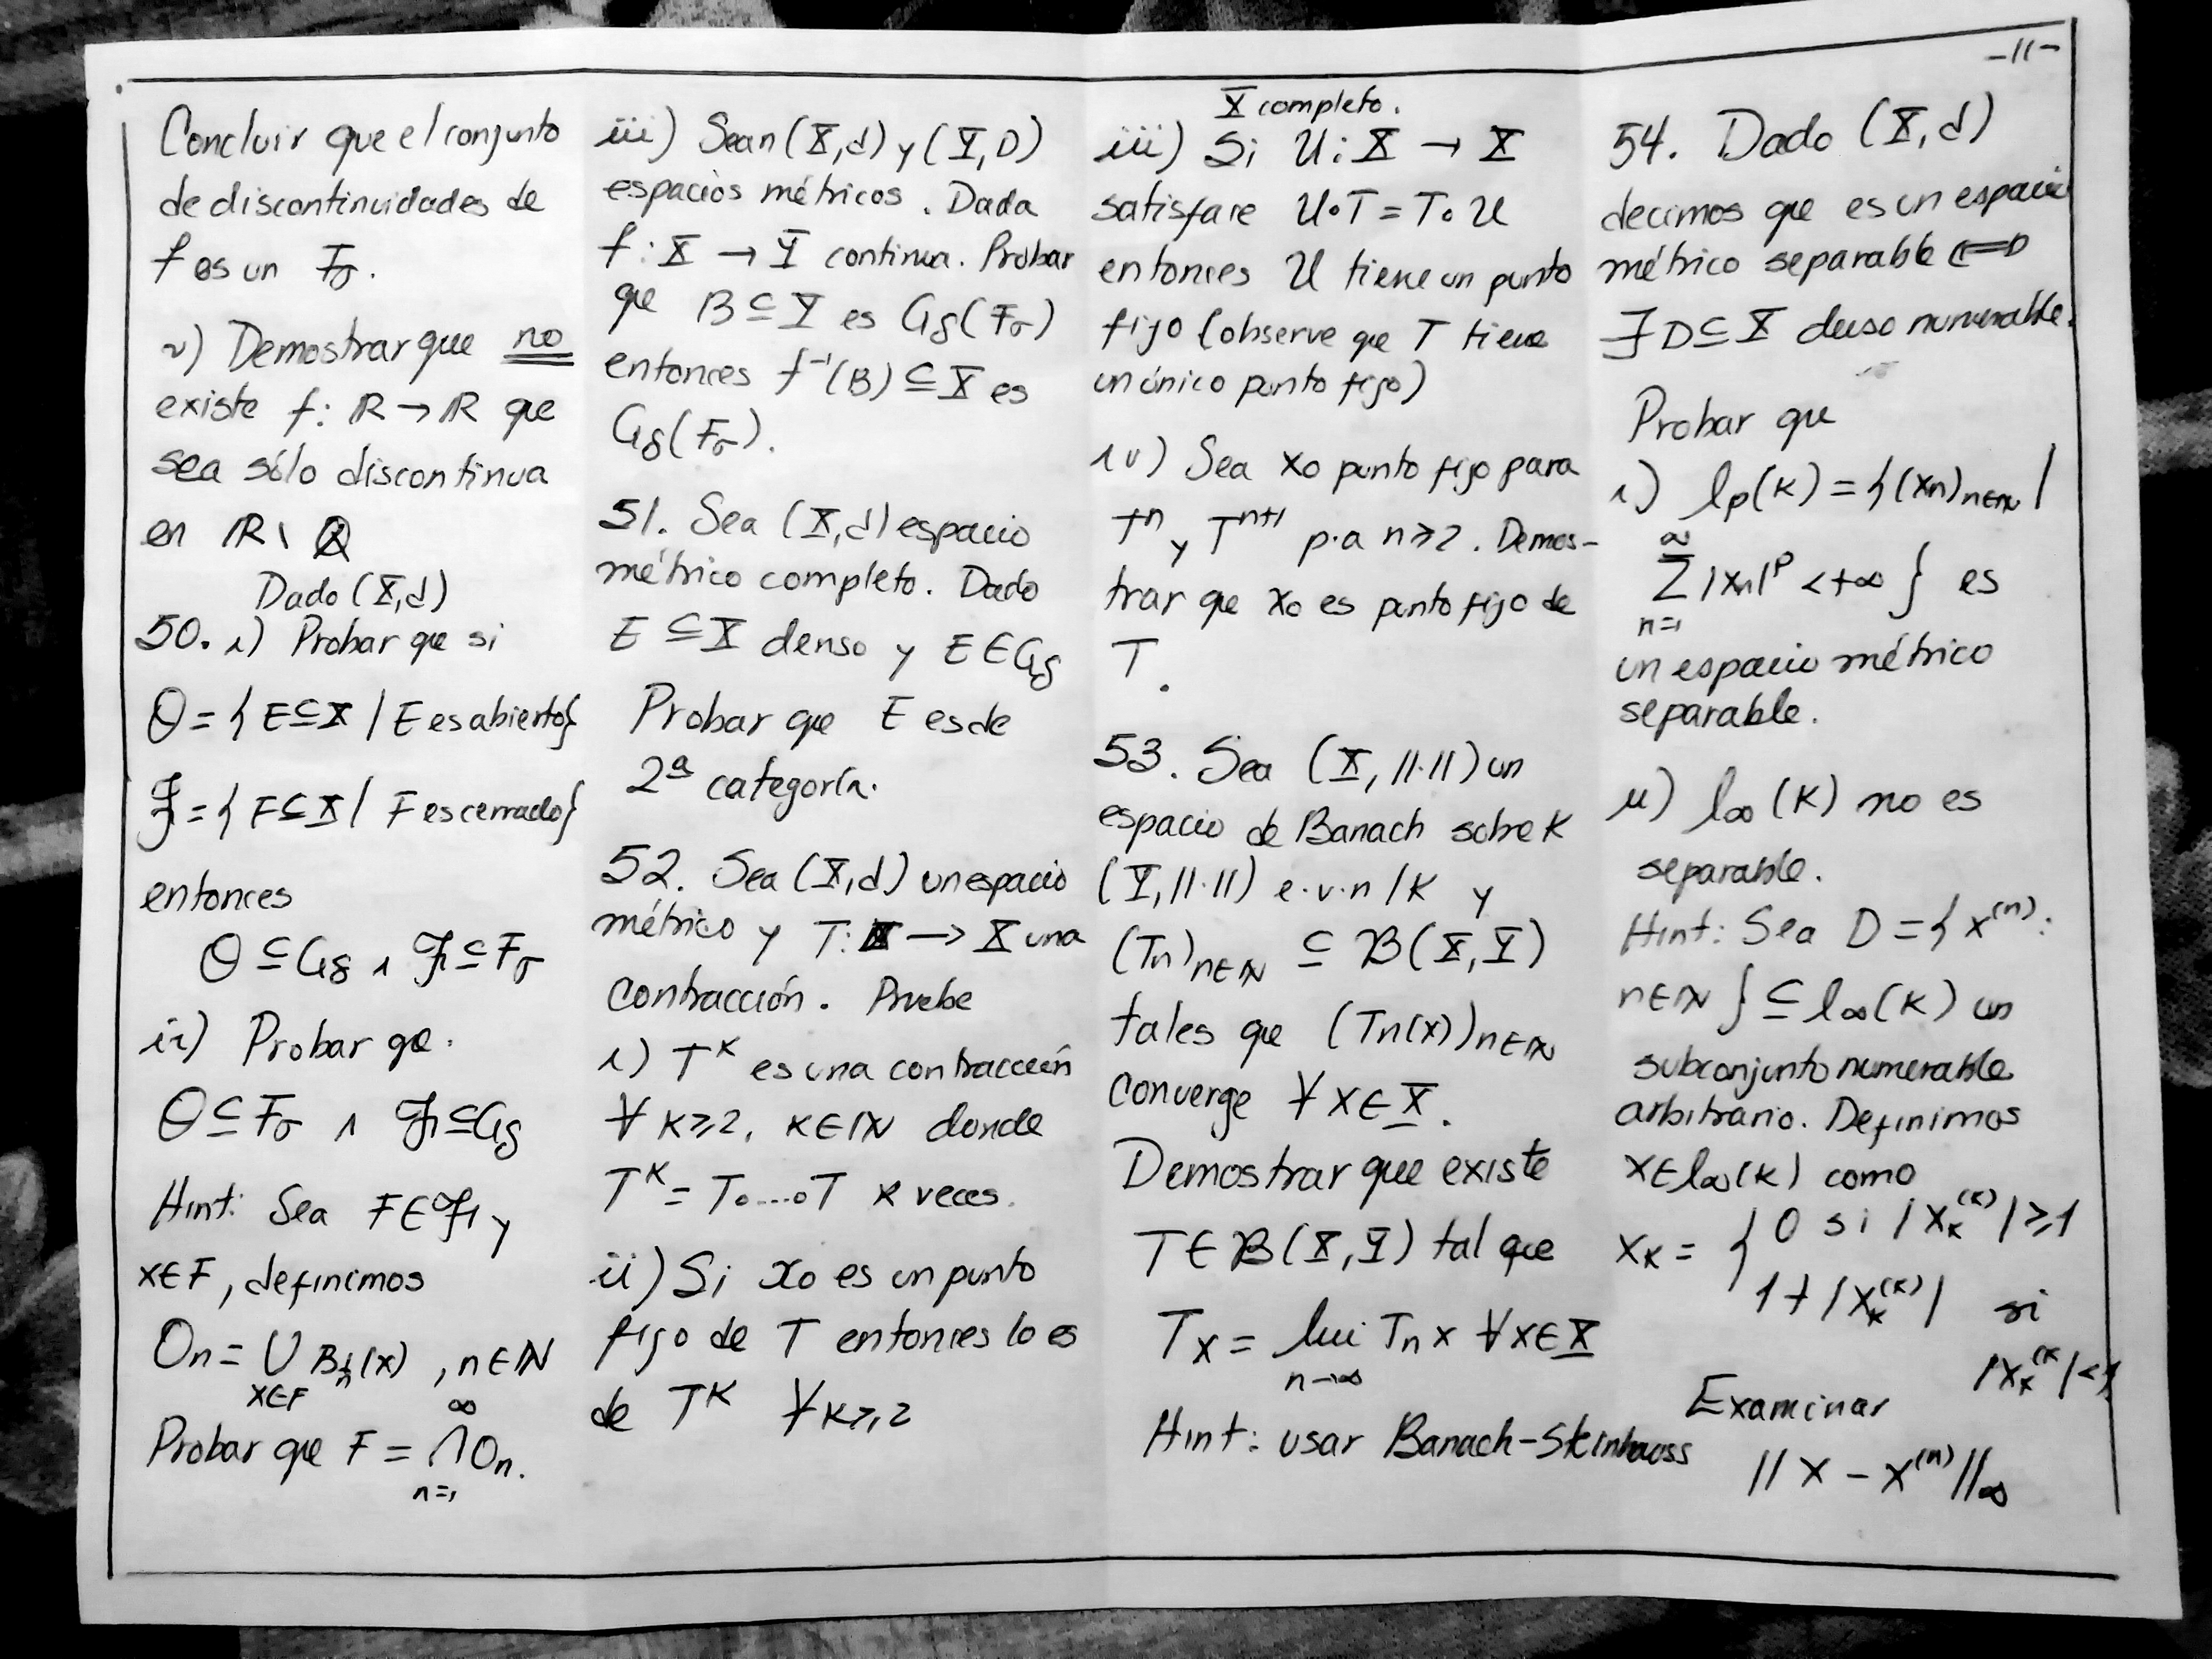 -11-
Concluir que el conjunto
de discontinuidades de
f es un Fσ.
v) Demostrar que no
existe f: ℝ → ℝ que
sea sólo discontinua
en ℝ \ ℚ
Dado (X,d)
50. i) Probar que si
Θ = { E ⊆ X / E es abierto}
ℱ = { F ⊆ X / F es cerrado}
entonces
Θ ⊆ Gδ ∧ ℱ ⊆ Fσ
ii) Probar qe.
Θ ⊆ Fσ ∧ ℱ ⊆ Gδ
Hint: Sea F ∈ ℱ y
x∈F, definimos
On = ∪ B1/n(x), n∈ℕ
x∈F
Probar que F = ∞∩n=1 On.
iii) Sean (X,d) y (Y,D)
espacios métricos. Dada
f: X → Y continua. Probar
que B ⊆ Y es Gδ(Fσ)
entonces f⁻¹(B) ⊆ X es
Gδ(Fσ).
51. Sea (X,d) espacio
métrico completo. Dado
E ⊆ X denso y E ∈ Gδ
Probar que E es de
2ª categoría.
52. Sea (X,d) un espacio
métrico y T: X → X una
contracción. Pruebe
i) T^K es una contracción
∀ K≥2, K∈ℕ donde
T^K = T∘....∘T K veces.
ii) Si x0 es un punto
fijo de T entonces lo es
de T^K ∀ K≥2
X completo.
iii) Si U: X → X
satisface U∘T = T∘U
entonces U tiene un punto
fijo (observe que T tiene
un único punto fijo)
iv) Sea x0 punto fijo para
T^n y T^{n+1} p.a n≥2. Demos-
trar que x0 es punto fijo de
T.
53. Sea (X, ||·||) un
espacio de Banach sobre K
(Y, ||·||) e.v.n /K y
(Tn)n∈ℕ ⊆ ℬ(X,Y)
tales que (Tn(x))n∈ℕ
converge ∀ x∈X.
Demostrar que existe
T∈ℬ(X,Y) tal que
Tx = lim Tn x ∀x∈X
n→∞
Hint: usar Banach-Steinhauss
54. Dado (X,d)
decimos que es un espacio
métrico separable ⟺
∃ D ⊆ X denso numerable.
Probar que
i) lp(K) = {(xn)n∈ℕ /
∞Σn=1 |xn|^p < +∞ } es
un espacio métrico
separable.
ii) l∞(K) no es
separable.
Hint: Sea D = { x^(n):
n∈ℕ } ⊆ l∞(K) un
subconjunto numerable
arbitrario. Definimos
x∈l∞(K) como
xK = { 0 si |xK^(K)| ≥ 1
1 + |xK^(K)| si
|xK^(K| < 1
Examinar
|| x - x^(n) ||∞